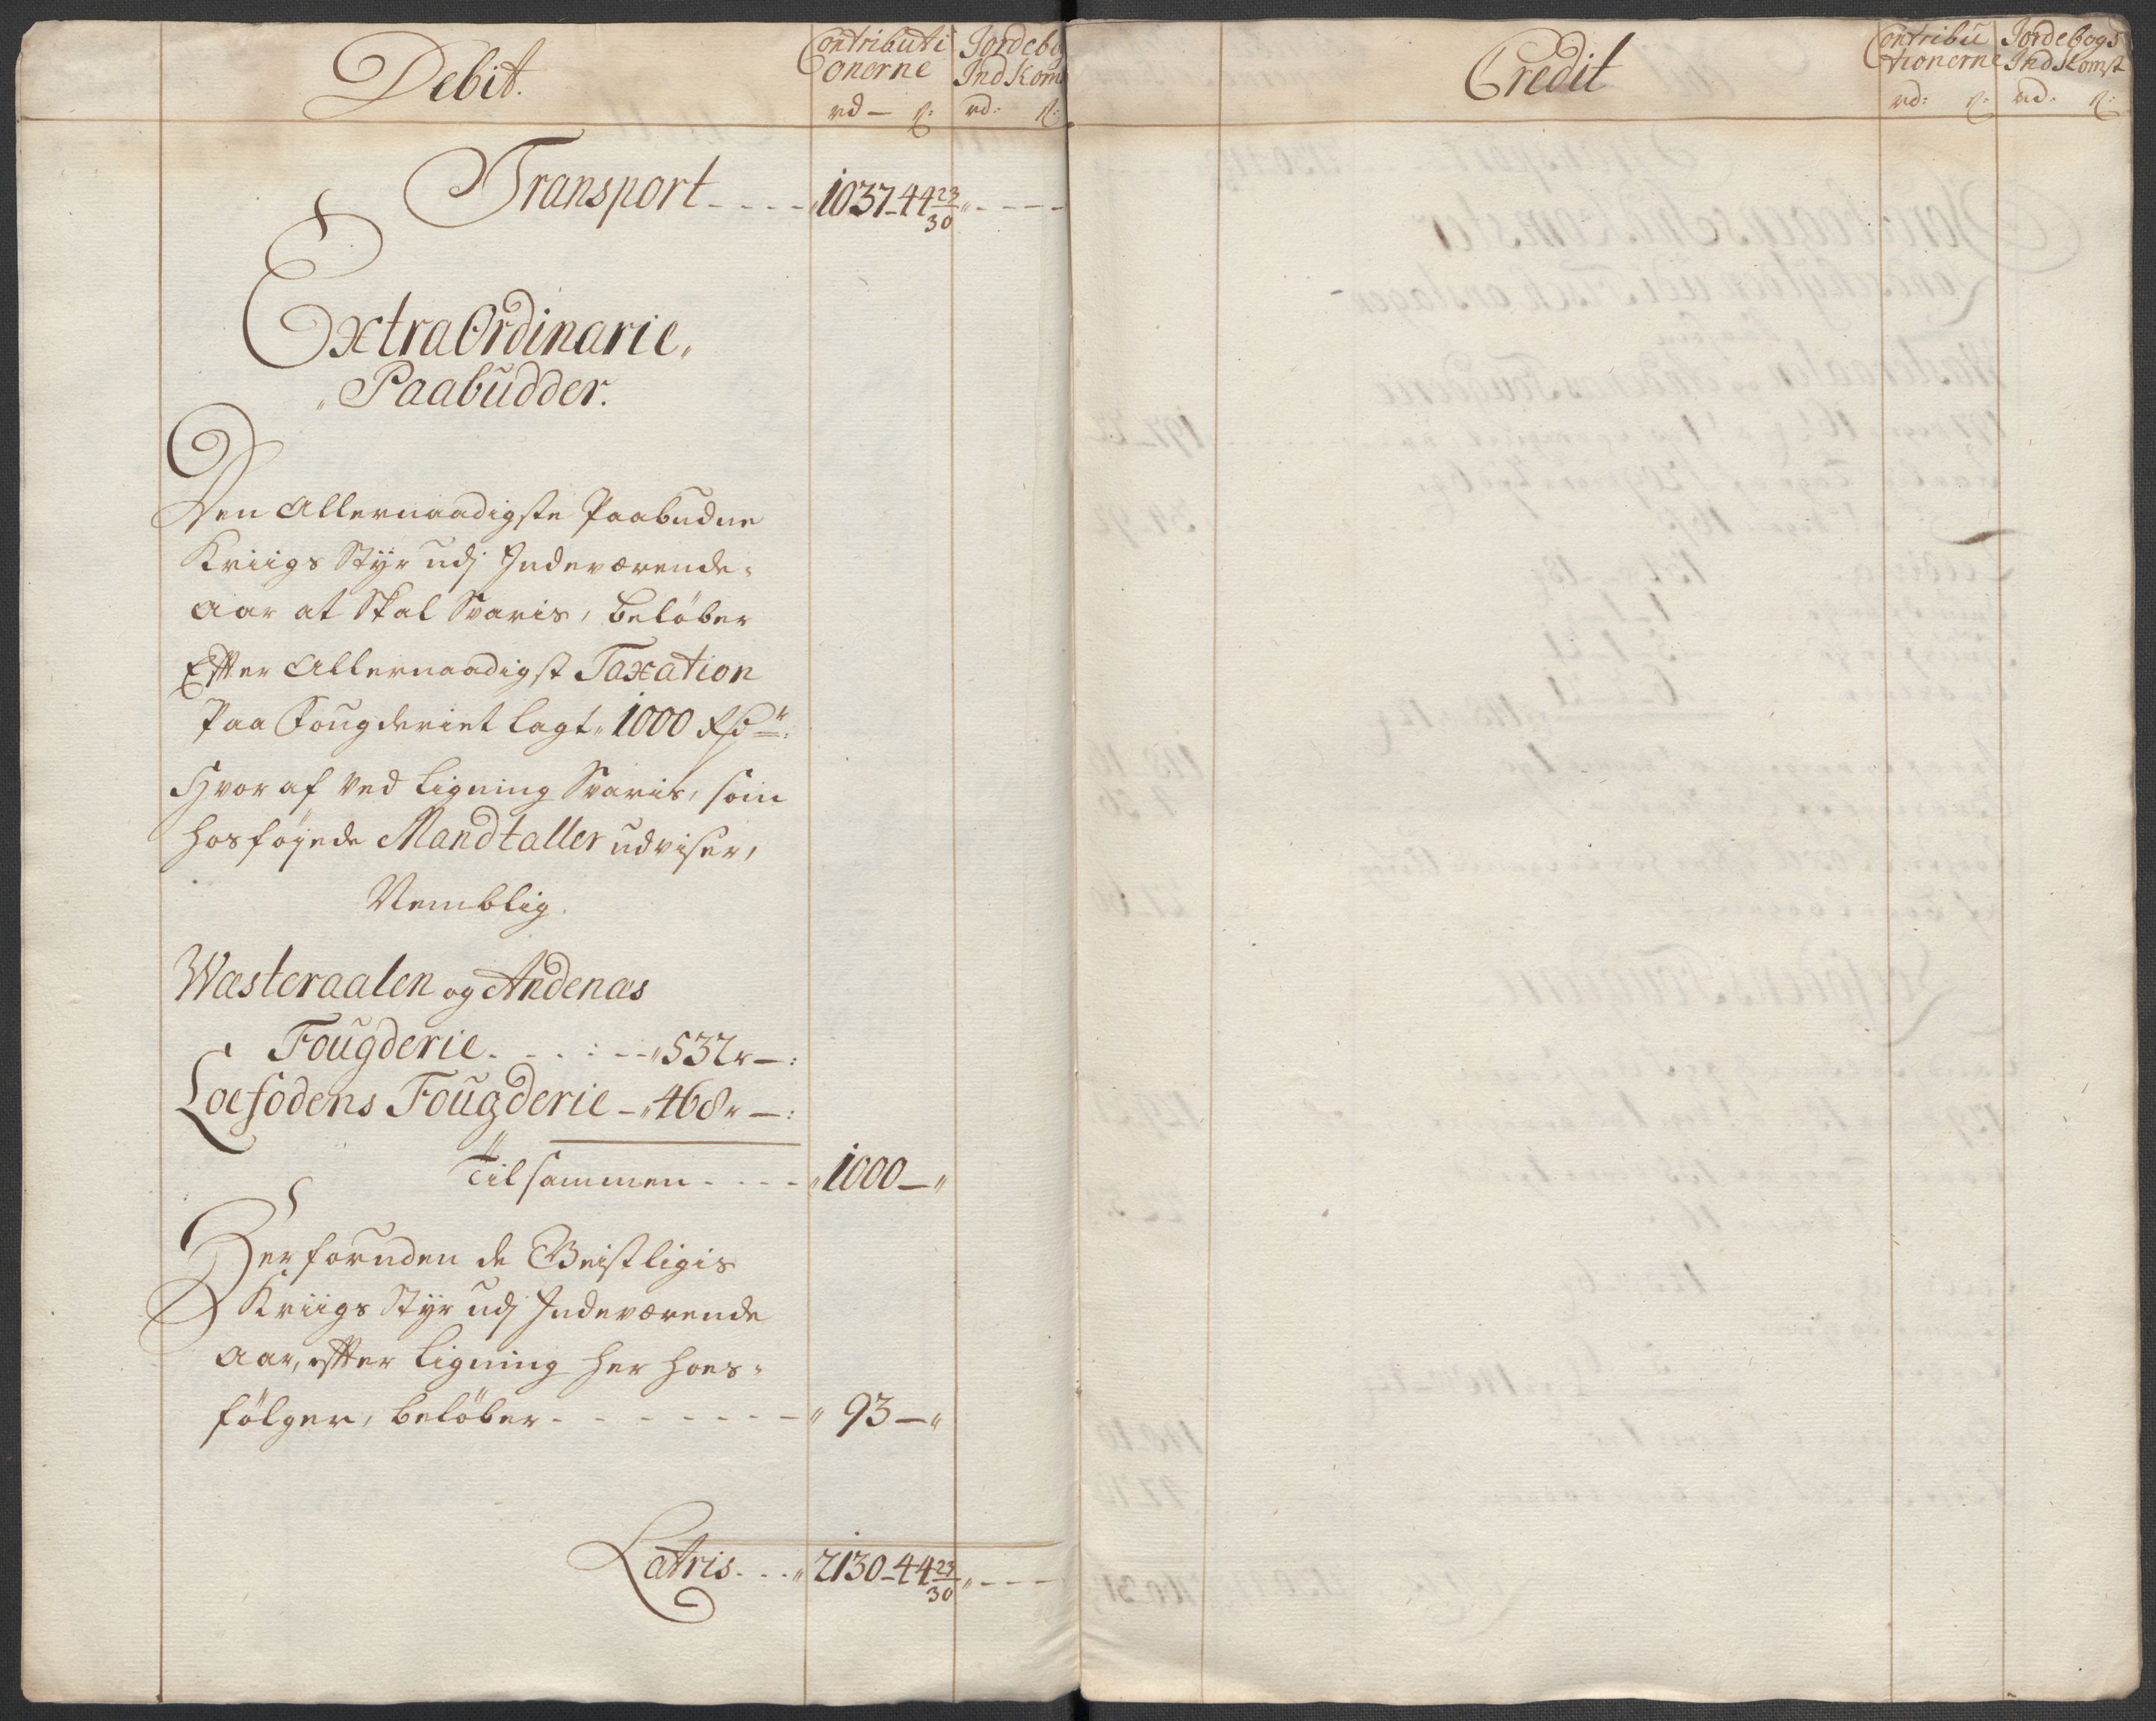 Debit.
Contributi Jordebo
onerne IndKom
rd — ß: rd: ß:
Transport - - - - " 1037 - 44 23/30 " - - - -
ExtraOrdinarie,
Paabudder.
Den Allernaadigste Paabudne
Kriigs Styr udj Indeværende
Aar at Skal Svaris, beløber
Effter Allernaadigst Taxation
Paa Fougderiet lagt, 1000 Rdr:
Hvoraf ved Ligning Svaris, som
hosføyede Mandtaller udviser,
Nemblig.
Wæsteraalen og Andenæs
Fougderie. - - - : - - " 532 r — :
Loefodens Fougderie — " 468 r — :
Tilsammen - - - - " 1000 — "
Herforuden de Geistligis
Kriigs Styr udj Indeværende
Aar, effter Ligning her hoes-
følger, beløber - - - - - - - " 93 — "
Latris. - - " 2130 - 44 23/30 " - - -
Credit
Contribu Jordebogs
tionerne IndKomst
rd: ß: rd: ß: